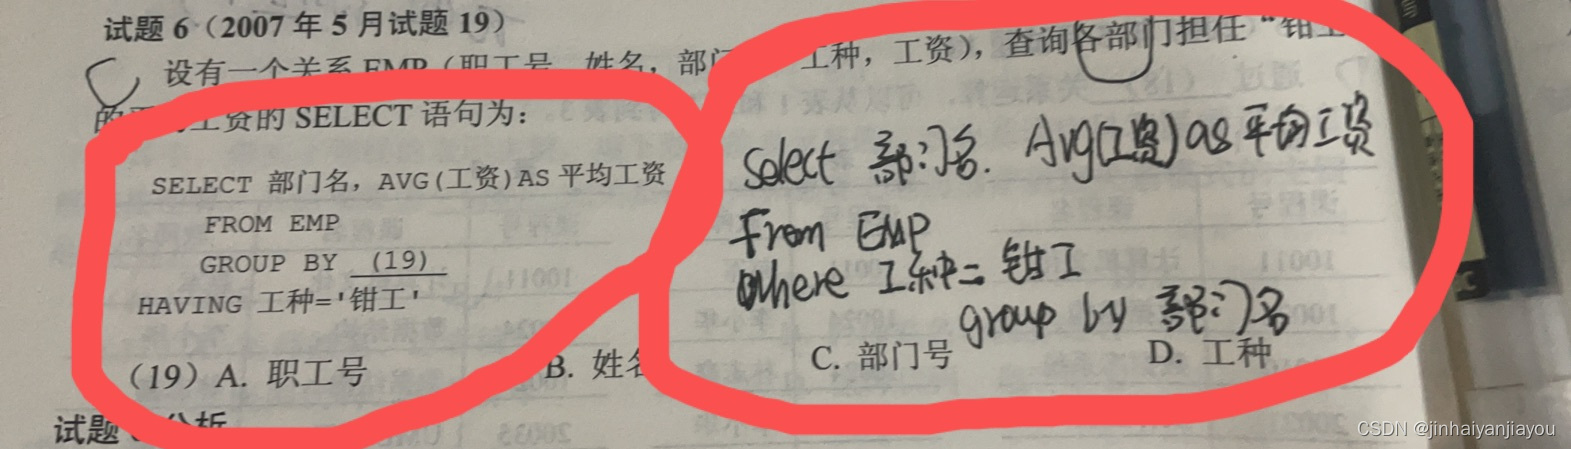 试题 6（2007 年 5 月试题 19）
设有一个关系 EMP（职工号，姓名，部门 工种，工资），查询各部门担任“钳工
的 工资的 SELECT 语句为：
SELECT 部门名，AVG(工资)AS 平均工资
FROM EMP
GROUP BY (19)
HAVING 工种='钳工'
Select 部门名. Avg(工资) as 平均工资
From EMP
Where 工种= 钳工
group by 部门名
（19）A. 职工号 B. 姓名 C. 部门号 D. 工种
试题 分析
CSDN @jinhaiyanjiayou